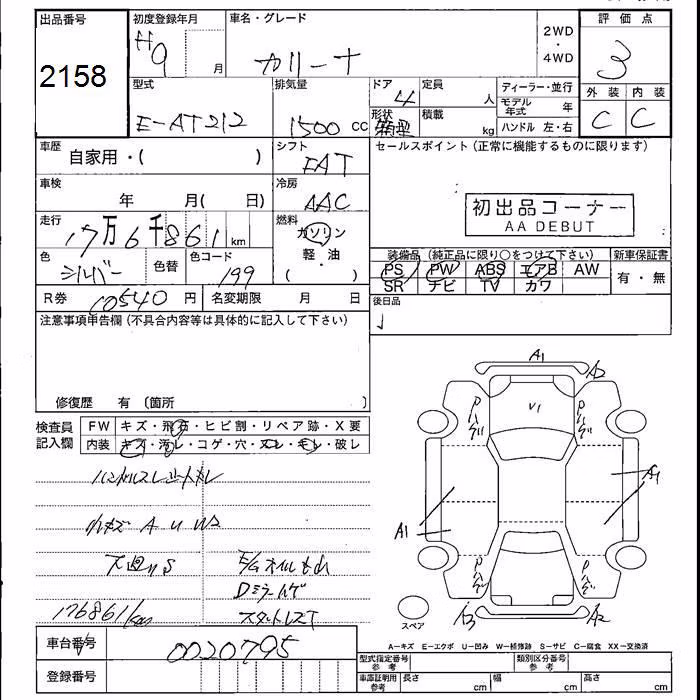 出品番号
2158
初度登録年月
H9 月
車名・グレード
カリーナ
2WD
・
4WD
評価点
3
外装 内装
C C
型式
E-AT212
排気量
1500 cc
ドア
4
形状
箱型
定員
人
積載
kg
ディーラー・並行
モデル年式 年
ハンドル 左・右
車歴
自家用・( )
シフト
FAT
セールスポイント (正常に機能するものに限ります)
初出品コーナー
AA DEBUT
車検
年 月( 日)
冷房
AAC
走行
17万6千861 km
燃料
ガソリン
軽・油
( )
色
シルバー
色替
色コード
199
装備品 (純正品に限り○をつけて下さい)
PS PW ABS エアB AW
SR ナビ TV カワ
新車保証書
有・無
R券 10540 円
名変期限 月 日
後日品
注意事項申告欄 (不具合内容等は具体的に記入して下さい)
修復歴 有 〔箇所 〕
検査員記入欄
FW キズ・飛石・ヒビ割・リペア跡・X要
内装 キズ・汚レ・コゲ・穴・スレ・モレ・破レ
ハンドルスレ シートスレ
小キズ A U W2
下廻りS
E/Gオイルもれ
Dミラーハゲ
176861km
スタットレスT
A1
A2
V1
Pハゲ
Pハゲ
A1
A1
Pハゲ
Pハゲ
A3
A2
スペア
A-キズ E-エクボ U-凹み W-補修跡 S-サビ C-腐食 XX-交換済
車台番号
0020795
登録番号
型式指定番号
参考
類別区分番号
参考
車庫証明用
参考
長さ cm
幅 cm
高さ cm